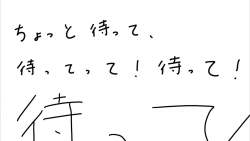 ちょっと 待って、
待ってって！待って！
待って